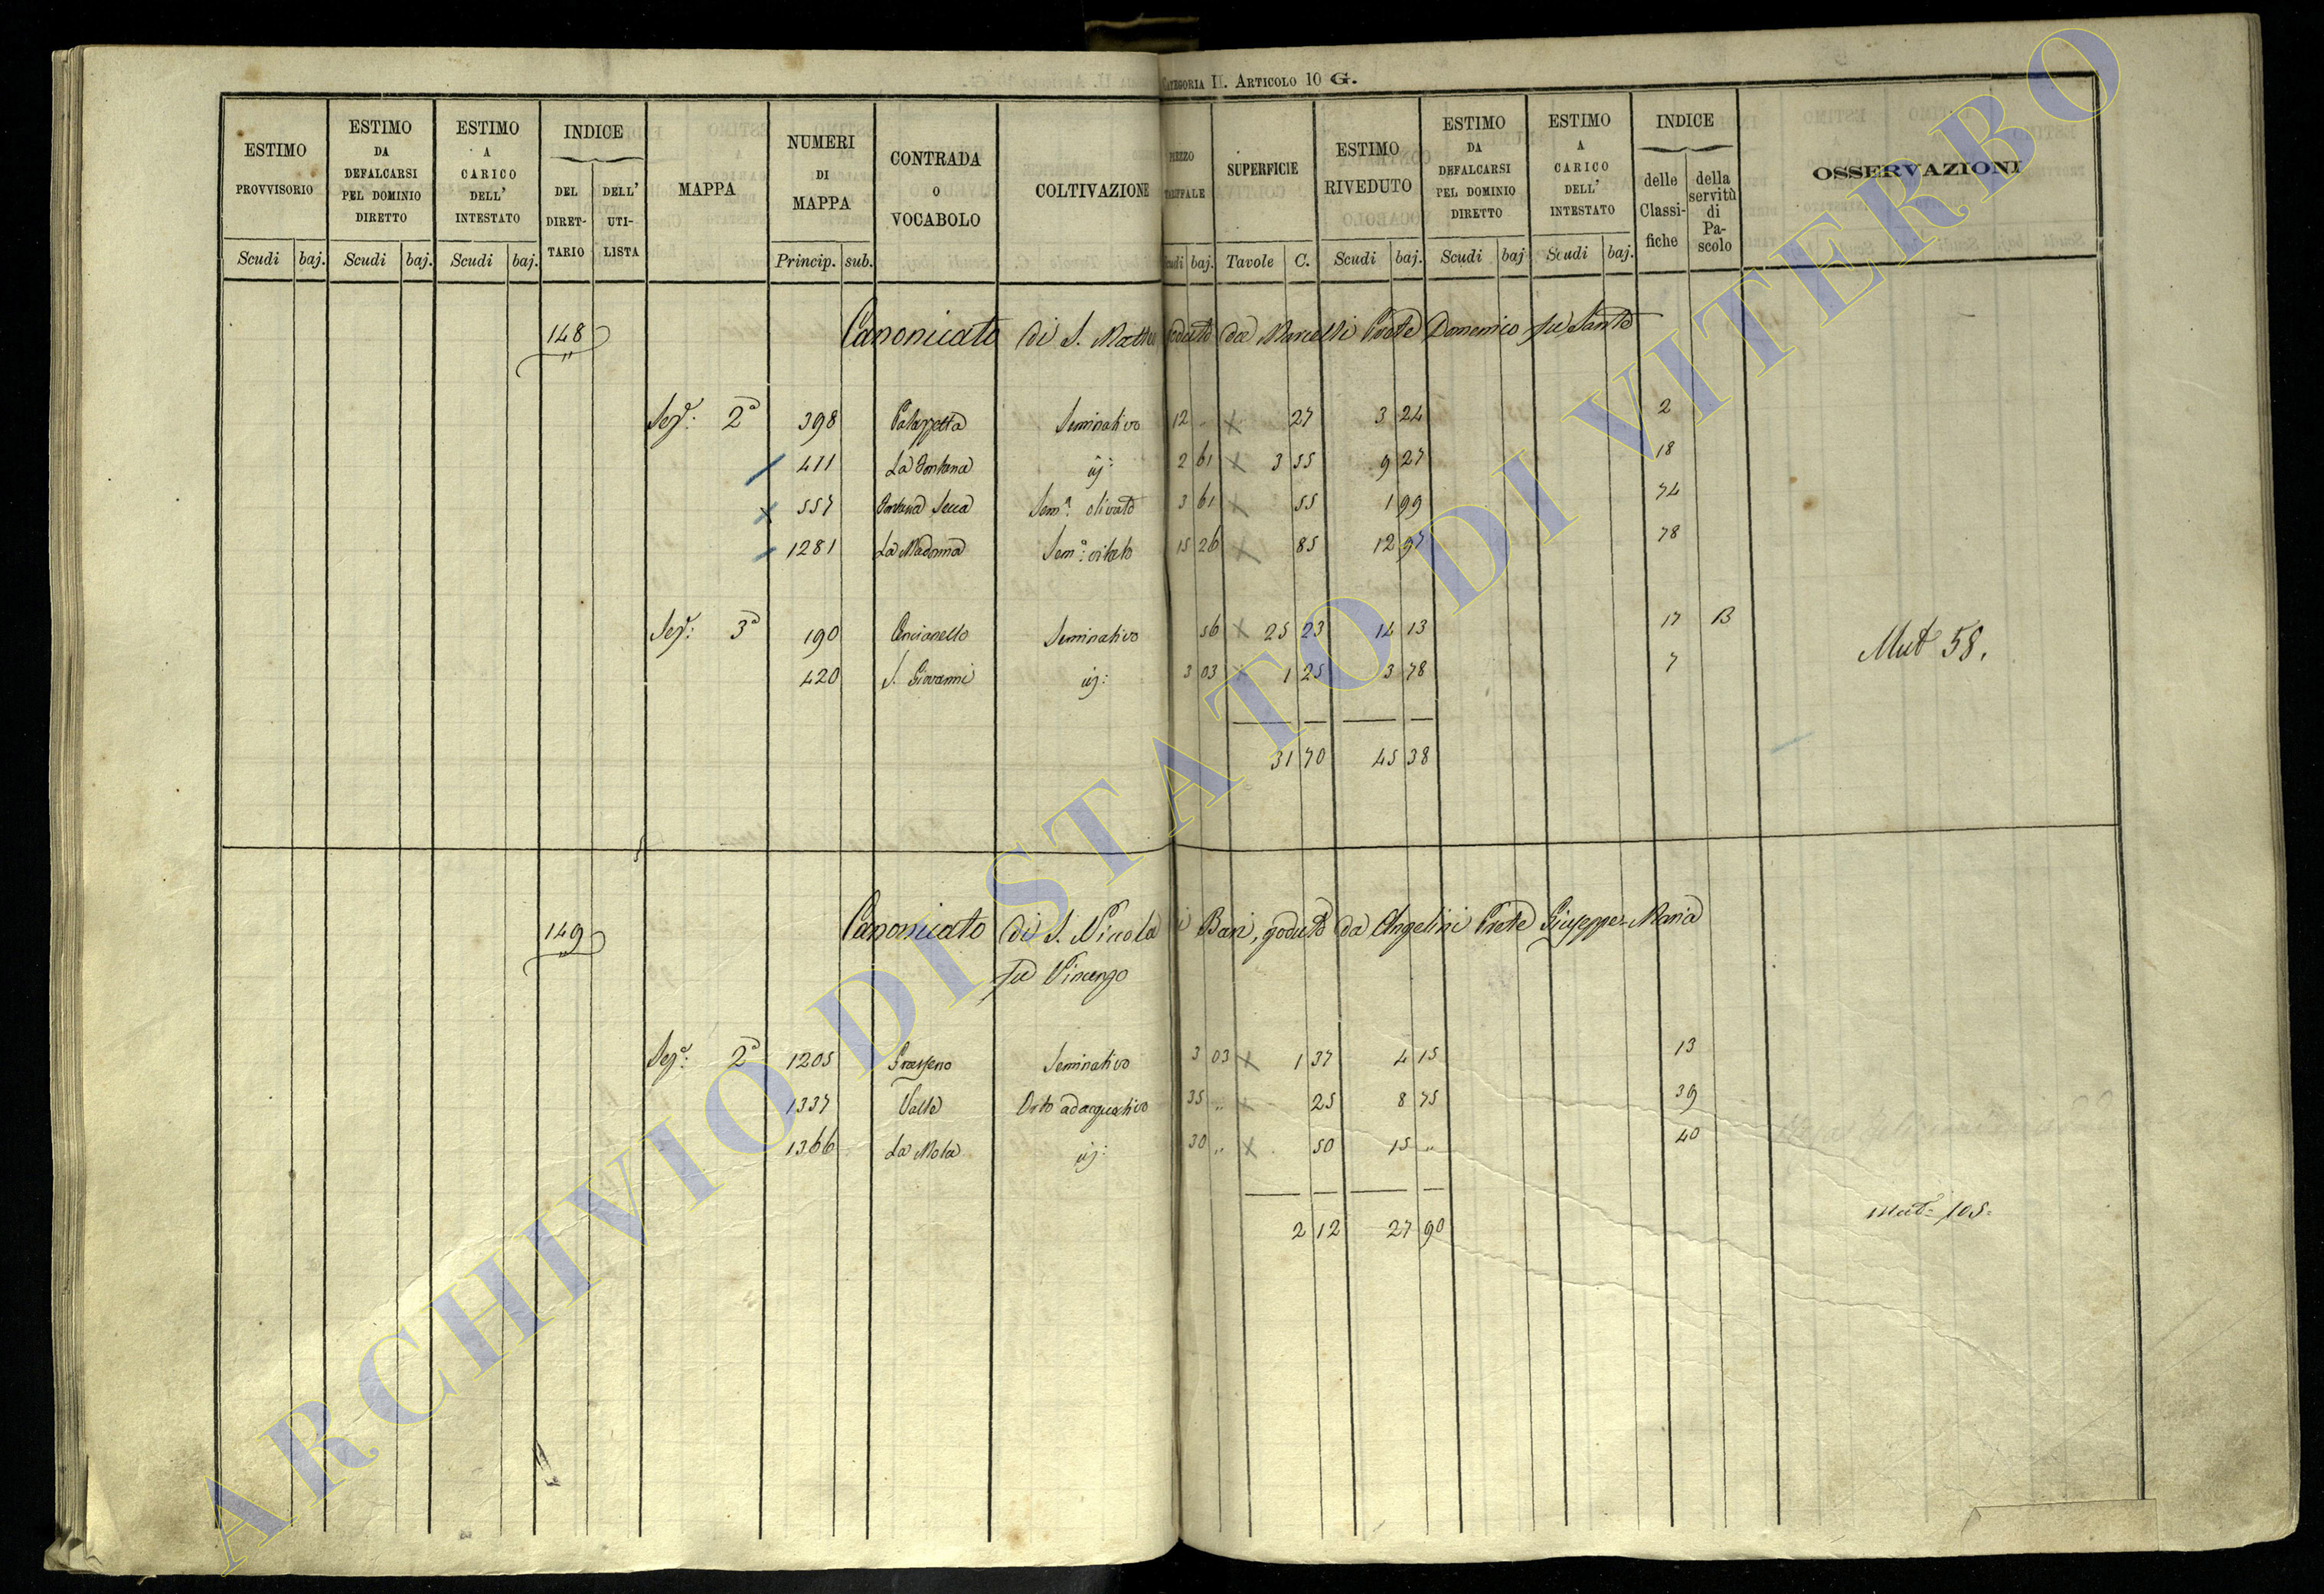 CATEGORIA II. ARTICOLO 10 G.
ESTIMO PROVVISORIO Scudi baj.
ESTIMO DA DEFALCARSI PEL DOMINIO DIRETTO Scudi baj.
ESTIMO A CARICO DELL' INTESTATO Scudi baj.
INDICE DEL DIRET-TARIO DELL' UTI-LISTA
MAPPA
NUMERI DI MAPPA Princip. sub.
CONTRADA O VOCABOLO
COLTIVAZIONE
SUPERFICIE Tavole C.
ESTIMO RIVEDUTO Scudi baj.
ESTIMO DA DEFALCARSI PEL DOMINIO DIRETTO Scudi baj
ESTIMO A CARICO DELL' INTESTATO Scudi baj.
INDICE delle Classi-fiche della servitù di Pa-scolo
OSSERVAZIONI
148 Canonicato di S. Matteo goduto da Marcelli Prete Domenico fu Santo
Sez.e: 2a 398 Palazzetta Seminativo 12 - 27 3 24 2
411 La Fontana id: 2 61 3 55 9 27 18
557 Fontana Secca Sem.o: olivato 3 61 55 1 99 74
1281 La Madonna Sem.o: vitato 15 26 85 12 97 78
Sez.e: 3a 190 Seminativo 56 25 23 14 13 17 B
420 S. Giovanni id: 3 03 1 25 3 78 7
Mut.e 58.
31 70 45 38
149 Canonicato di S. Niccola di Bari, goduto da Angelini Prete Giuseppe-Maria
fu Vincenzo
Sez.e: 2a 1205 Seminativo 3 03 1 37 4 15 13
1337 Valle Orto adacquativo 35 " 25 8 75 39
1366 La Mola id: 30 " 50 15 " 40
Mut.e 105.
2 12 27 90
ARCHIVIO DI STATO DI VITERBO